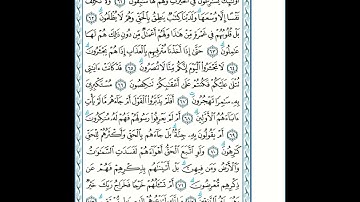 أُوْلَٰٓئِكَ يُسَٰرِعُونَ فِي ٱلۡخَيۡرَٰتِ وَهُمۡ لَهَا سَٰبِقُونَ ٦١ وَلَا نُكَلِّفُ
نَفۡسًا إِلَّا وُسۡعَهَاۚ وَلَدَيۡنَا كِتَٰبٞ يَنطِقُ بِٱلۡحَقِّ وَهُمۡ لَا يُظۡلَمُونَ ٦٢
بَلۡ قُلُوبُهُمۡ فِي غَمۡرَةٖ مِّنۡ هَٰذَا وَلَهُمۡ أَعۡمَٰلٞ مِّن دُونِ ذَٰلِكَ هُمۡ لَهَا
عَٰمِلُونَ ٦٣ حَتَّىٰٓ إِذَآ أَخَذۡنَا مُتۡرَفِيهِم بِٱلۡعَذَابِ إِذَا هُمۡ يَجۡـَٔرُونَ
٦٤ لَا تَجۡـَٔرُواْ ٱلۡيَوۡمَۖ إِنَّكُم مِّنَّا لَا تُنصَرُونَ ٦٥ قَدۡ كَانَتۡ ءَايَٰتِي
تُتۡلَىٰ عَلَيۡكُمۡ فَكُنتُمۡ عَلَىٰٓ أَعۡقَٰبِكُمۡ تَنكِصُونَ ٦٦ مُسۡتَكۡبِرِينَ
بِهِۦ سَٰمِرٗا تَهۡجُرُونَ ٦٧ أَفَلَمۡ يَدَّبَّرُواْ ٱلۡقَوۡلَ أَمۡ جَآءَهُم مَّا لَمۡ يَأۡتِ
ءَابَآءَهُمُ ٱلۡأَوَّلِينَ ٦٨ أَمۡ لَمۡ يَعۡرِفُواْ رَسُولَهُمۡ فَهُمۡ لَهُۥ مُنكِرُونَ
٦٩ أَمۡ يَقُولُونَ بِهِۦ جِنَّةُۢۚ بَلۡ جَآءَهُم بِٱلۡحَقِّ وَأَكۡثَرُهُمۡ لِلۡحَقِّ
كَٰرِهُونَ ٧٠ وَلَوِ ٱتَّبَعَ ٱلۡحَقُّ أَهۡوَآءَهُمۡ لَفَسَدَتِ ٱلسَّمَٰوَٰتُ
وَٱلۡأَرۡضُ وَمَن فِيهِنَّۚ بَلۡ أَتَيۡنَٰهُم بِذِكۡرِهِمۡ فَهُمۡ عَن
ذِكۡرِهِم مُّعۡرِضُونَ ٧١ أَمۡ تَسۡـَٔلُهُمۡ خَرۡجٗا فَخَرَاجُ رَبِّكَ خَيۡرٞۖ